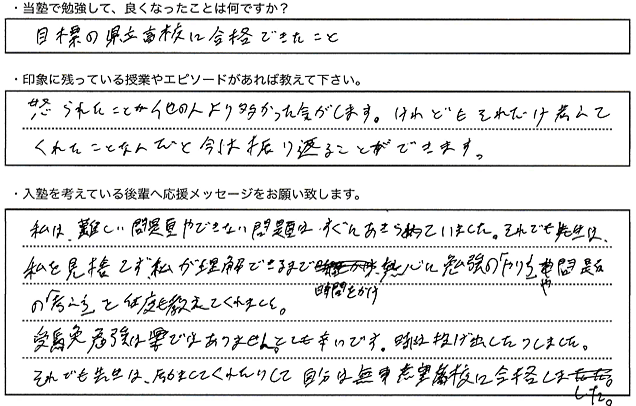 ・当塾で勉強して、良くなったことは何ですか？
目標の県立高校に合格できたこと
・印象に残っている授業やエピソードがあれば教えて下さい。
怒られたことが他の人より多かった気がします。けれどもそれだけ考えて
くれたことなんだと今は振り返ることができます。
・入塾を考えている後輩へ応援メッセージをお願い致します。
私は、難しい問題やできない問題は、すぐにあきらめていました。それでも先生は、
私を見捨てず私が理解できるまで時間をかけ熱心に勉強の「やり方」や問題
の「考え方」を何度も教えてくれました。
受験勉強は楽ではありません。とても辛いです。時には投げ出したりしました。
それでも先生は、励ましてくれたりして自分は無事志望高校に合格しました。